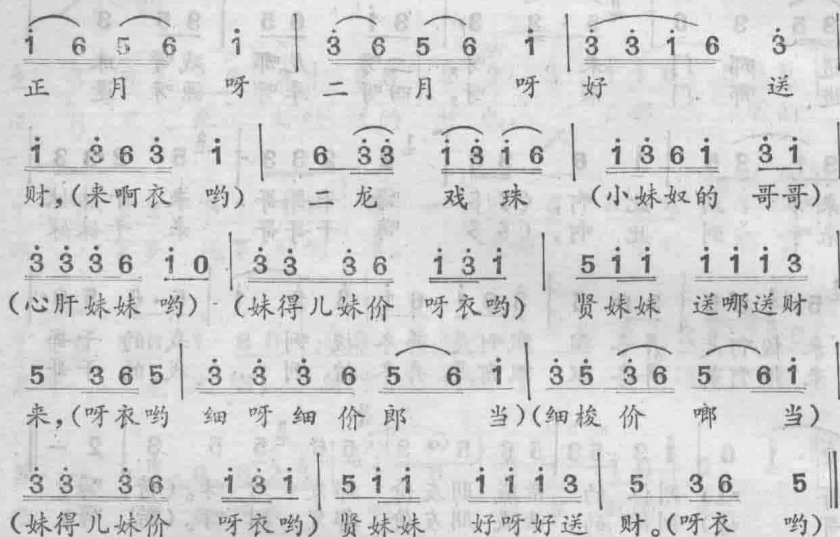 i̇ 6 5 6 i̇ | 3̇ 6 5 6 i̇ | 3̇ 3̇ i̇ 6 3̇
正 月 呀 二 月 呀 好 送
i̇ 3̇ 6 3̇ i̇ | 6 3̇3̇ i̇ 3̇ i̇ 6 | i̇ 3̇ 6 i̇ 3̇ i̇
财，(来啊衣 哟) 二 龙 戏 珠 (小妹奴的 哥哥)
3̇ 3̇ 3̇ 6 i̇ 0 | 3̇3̇ 3̇6 i̇ 3̇ i̇ | 5 i̇ i̇ i̇ i̇ i̇ 3̇
(心肝妹妹 哟) (妹得儿妹价 呀衣哟) 贤妹妹 送哪送财
5 3 6 5 | 3̇ 3̇ 3̇ 6 5 6 i̇ | 3̇5 3̇6 5 6i̇
来，(呀衣哟 细 呀 细 价 郎 当)(细梭 价 啷 当)
3̇3̇ 3̇6 i̇ 3̇ i̇ | 5 i̇ i̇ i̇ i̇ i̇ 3̇ | 5 3 6 5 ‖
(妹得儿妹价 呀衣哟) 贤妹妹 好呀好送 财。(呀衣 哟)